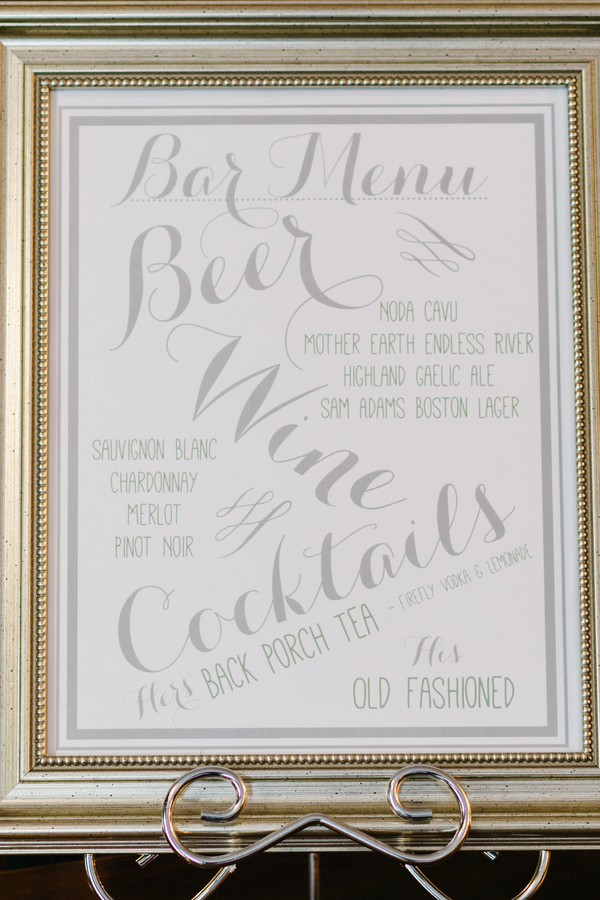 Bar Menu
Beer
NODA CAVU
MOTHER EARTH ENDLESS RIVER
HIGHLAND GAELIC ALE
SAM ADAMS BOSTON LAGER
Wine
SAUVIGNON BLANC
CHARDONNAY
MERLOT
PINOT NOIR
Cocktails
Hers BACK PORCH TEA - FIREFLY VODKA & LEMONADE
His
OLD FASHIONED